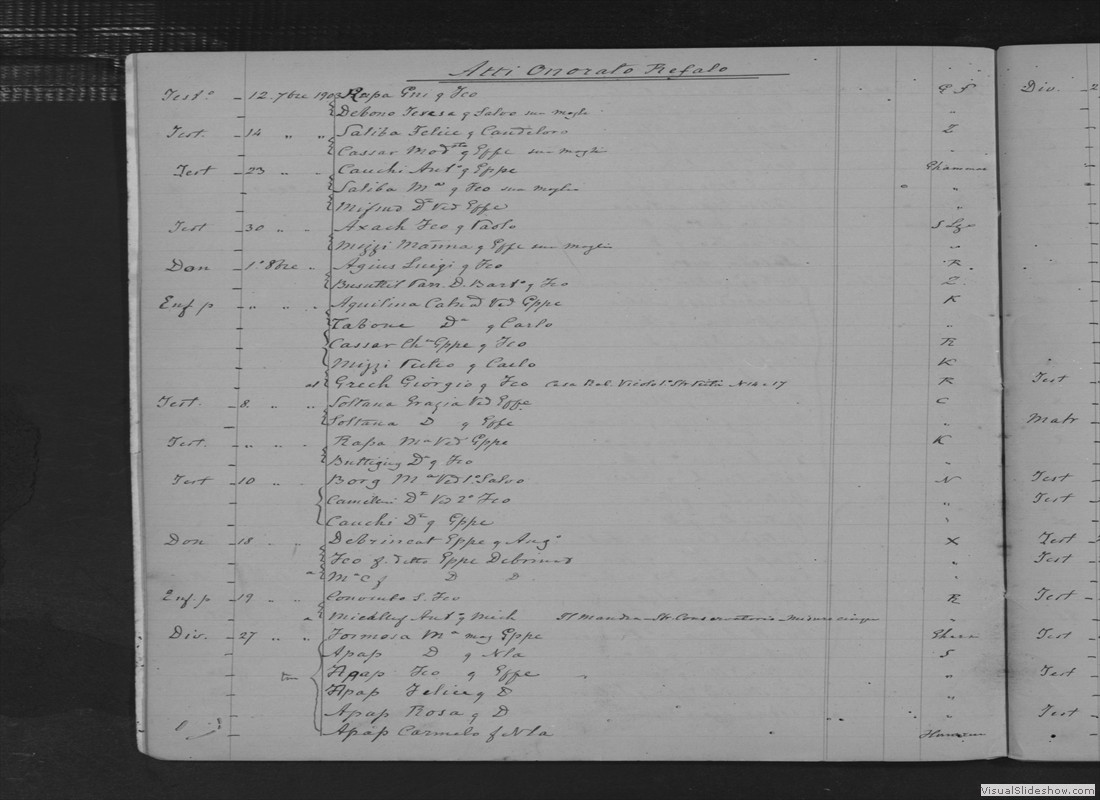 Atti Onorato Refalo
Test.º 12 7bre 1903 Rapa Gni q Fco G S
Debono Teresa q Salvo sua moglie "
Test. 14 " " Saliba Felice q Candeloro Z
Cassar q Gppe sua moglie
Test 23 " " Cauchi Ant.º q Gppe Ghammar
Saliba Mª q Fco sua moglie "
Mifsud Dª Ved Gppe "
Test 30 " " Axach Fco q Paolo S Lzo
Mizzi Marina q Gppe sua moglie "
Don 1º 8bre " Agius Luigi q Fco R
Busuttil Parr. D. Bartº q Fco Z.
Enf. p " " " Aquilina Ved Gppe K
Tabone Dª q Carlo "
Cassar Gppe q Fco R
Mizzi q Carlo K
al Grech Giorgio q Fco Casa Nº 17 R
Test. 8 " " Soltana Grazia Ved Gppe C
Soltana D q Gppe "
Test. " " " Rapa Mª Ved Gppe K
Buttigieg Dª q Fco "
Test 10 " " Borg Mª Ved 1º Salvo N
Camilleri Dª Ved 2º Fco "
Cauchi Dª q Gppe "
Don 18 " " Debrincat Gppe q Angº X
Fco f. detto Gppe Debrincat "
Mª C f D D "
Enf. p 19 " " Fco R
a q Mich Str Conservatorio "
Div. 27 " " Formosa Mª mog Gppe
Apap D q Nla S
Apap Fco q Gppe "
Apap Felice q D "
Apap Rosa q D "
Apap Carmelo f Nla
Div. 2
Test
Matr
Test
Test
Test
Test
Test
Test
Test
Test
VisualSlideshow.com